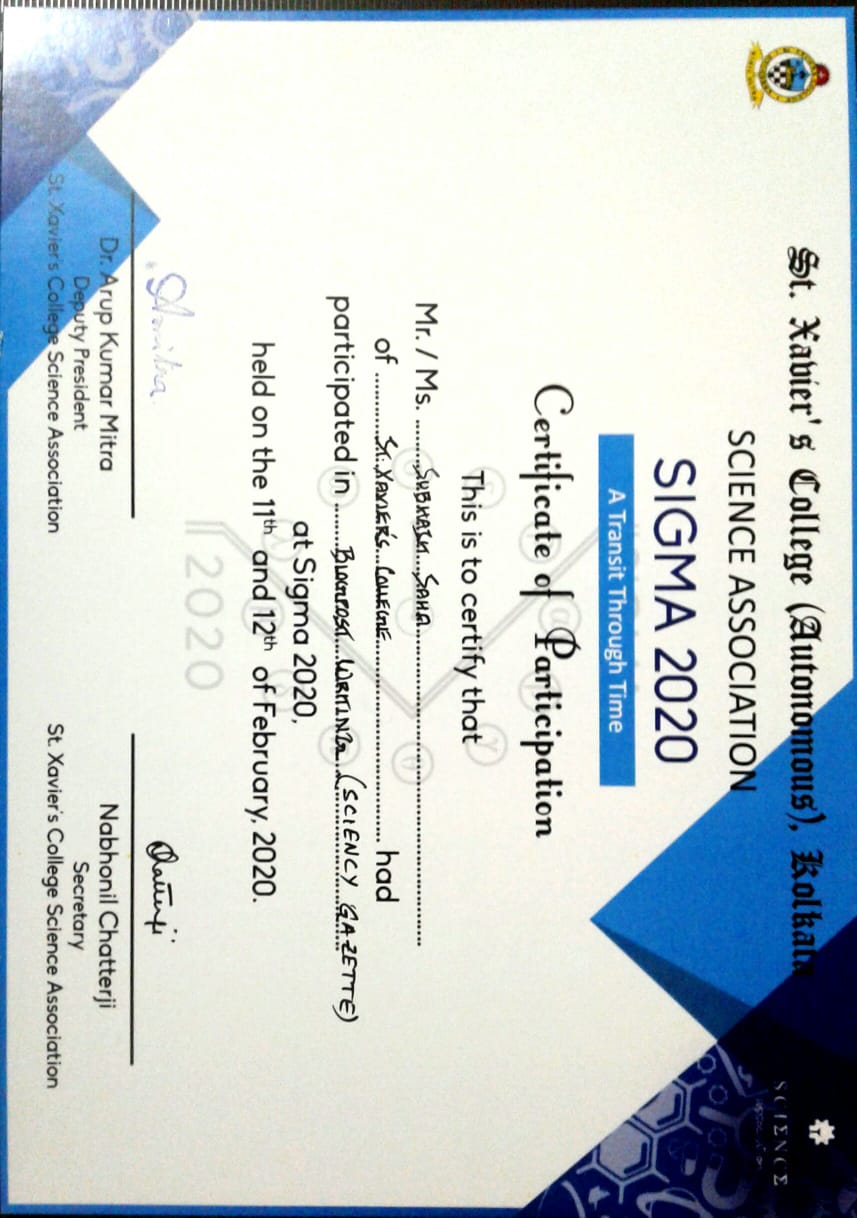 St. Xavier's College (Autonomous), Kolkata
SCIENCE
ASSOCIATION
SCIENCE ASSOCIATION
SIGMA 2020
A Transit Through Time
Certificate of Participation
This is to certify that
Mr. / Ms. SUBHASH SAHA
of ST. XAVIER'S COLLEGE had
participated in BLOGPOST WRITING (SCIENCY GAZETTE)
at Sigma 2020,
held on the 11th and 12th of February, 2020.
2020
Dr. Arup Kumar Mitra
Deputy President
St. Xavier's College Science Association
Chatterji
Nabhonil Chatterji
Secretary
St. Xavier's College Science Association